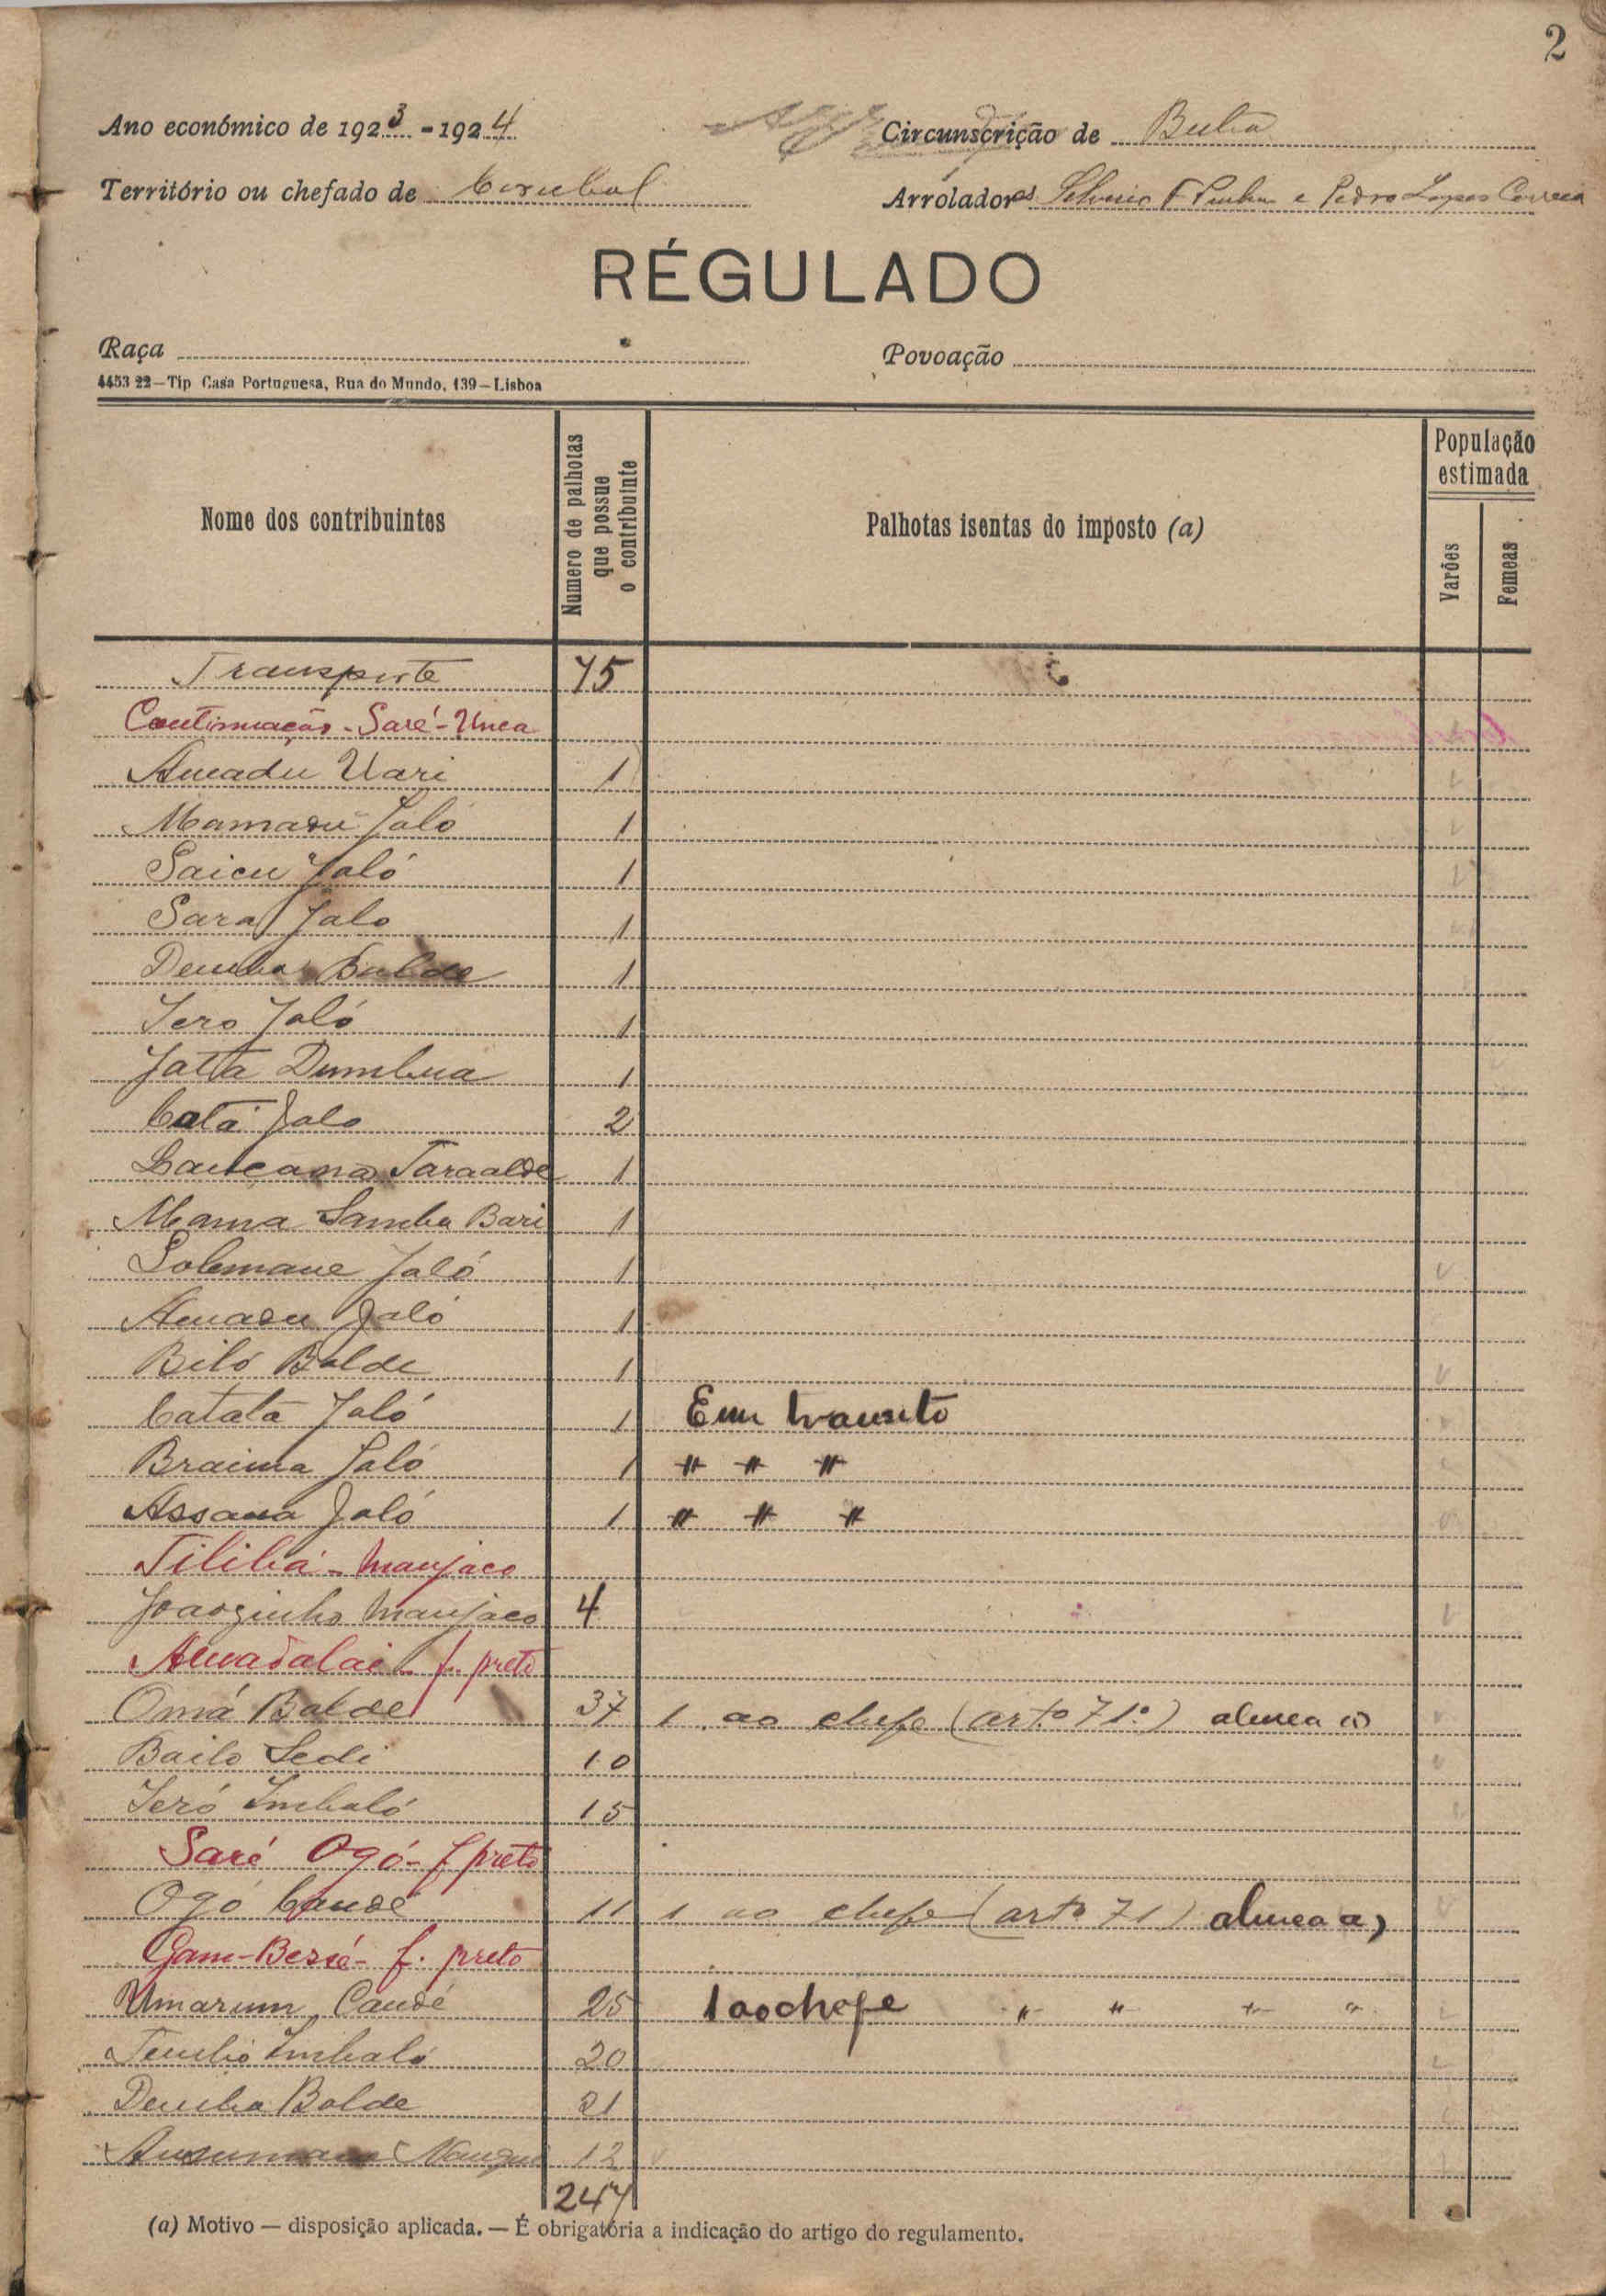 2
Ano económico de 1923-1924
Circunscrição de Buba
Território ou chefado de Corubal
Arroladores F e Pedro Lopes Correia
RÉGULADO
Raça
Povoação
4453 22—Tip Casa Portuguesa, Rua do Mundo, 139—Lisboa
Nome dos contribuintes
Numero de palhotas que possue o contribuinte
Palhotas isentas do imposto (a)
População estimada
Varões
Femeas
Transporte 75
Continuação - Saré-Unca
Amadu Uari 1
Mamadu Jaló 1
Saicu Jaló 1
Sara Jalo 1
Demba Balde 1
Iero Jaló 1
Jatta Dumbua 1
Catá Jalo 2
Lançana 1
Mama Samba Bari 1
Solemane Jaló 1
Amadu Jaló 1
Biló Balde 1
Catata Jaló 1 Em transito
Braima Jaló 1 " " "
Assana Jaló 1 " " "
Tilibá - Manjaco
Joaozinho Manjaco 4
Amadalai - f. preto
Omá Balde 37 1 ao chefe (art.º 71º) alinea a)
Bailo Sedi 10
Ieró Embaló 15
Saré Ogó - f preto
Ogó Candé 11 1 ao chefe (artº 71) alinea a)
Gam-Besié - f. preto
Umarum Candé 25 1 ao chefe " " " "
Embaló 20
Demba Balde 21
12
247
(a) Motivo — disposição aplicada. — É obrigatória a indicação do artigo do regulamento.